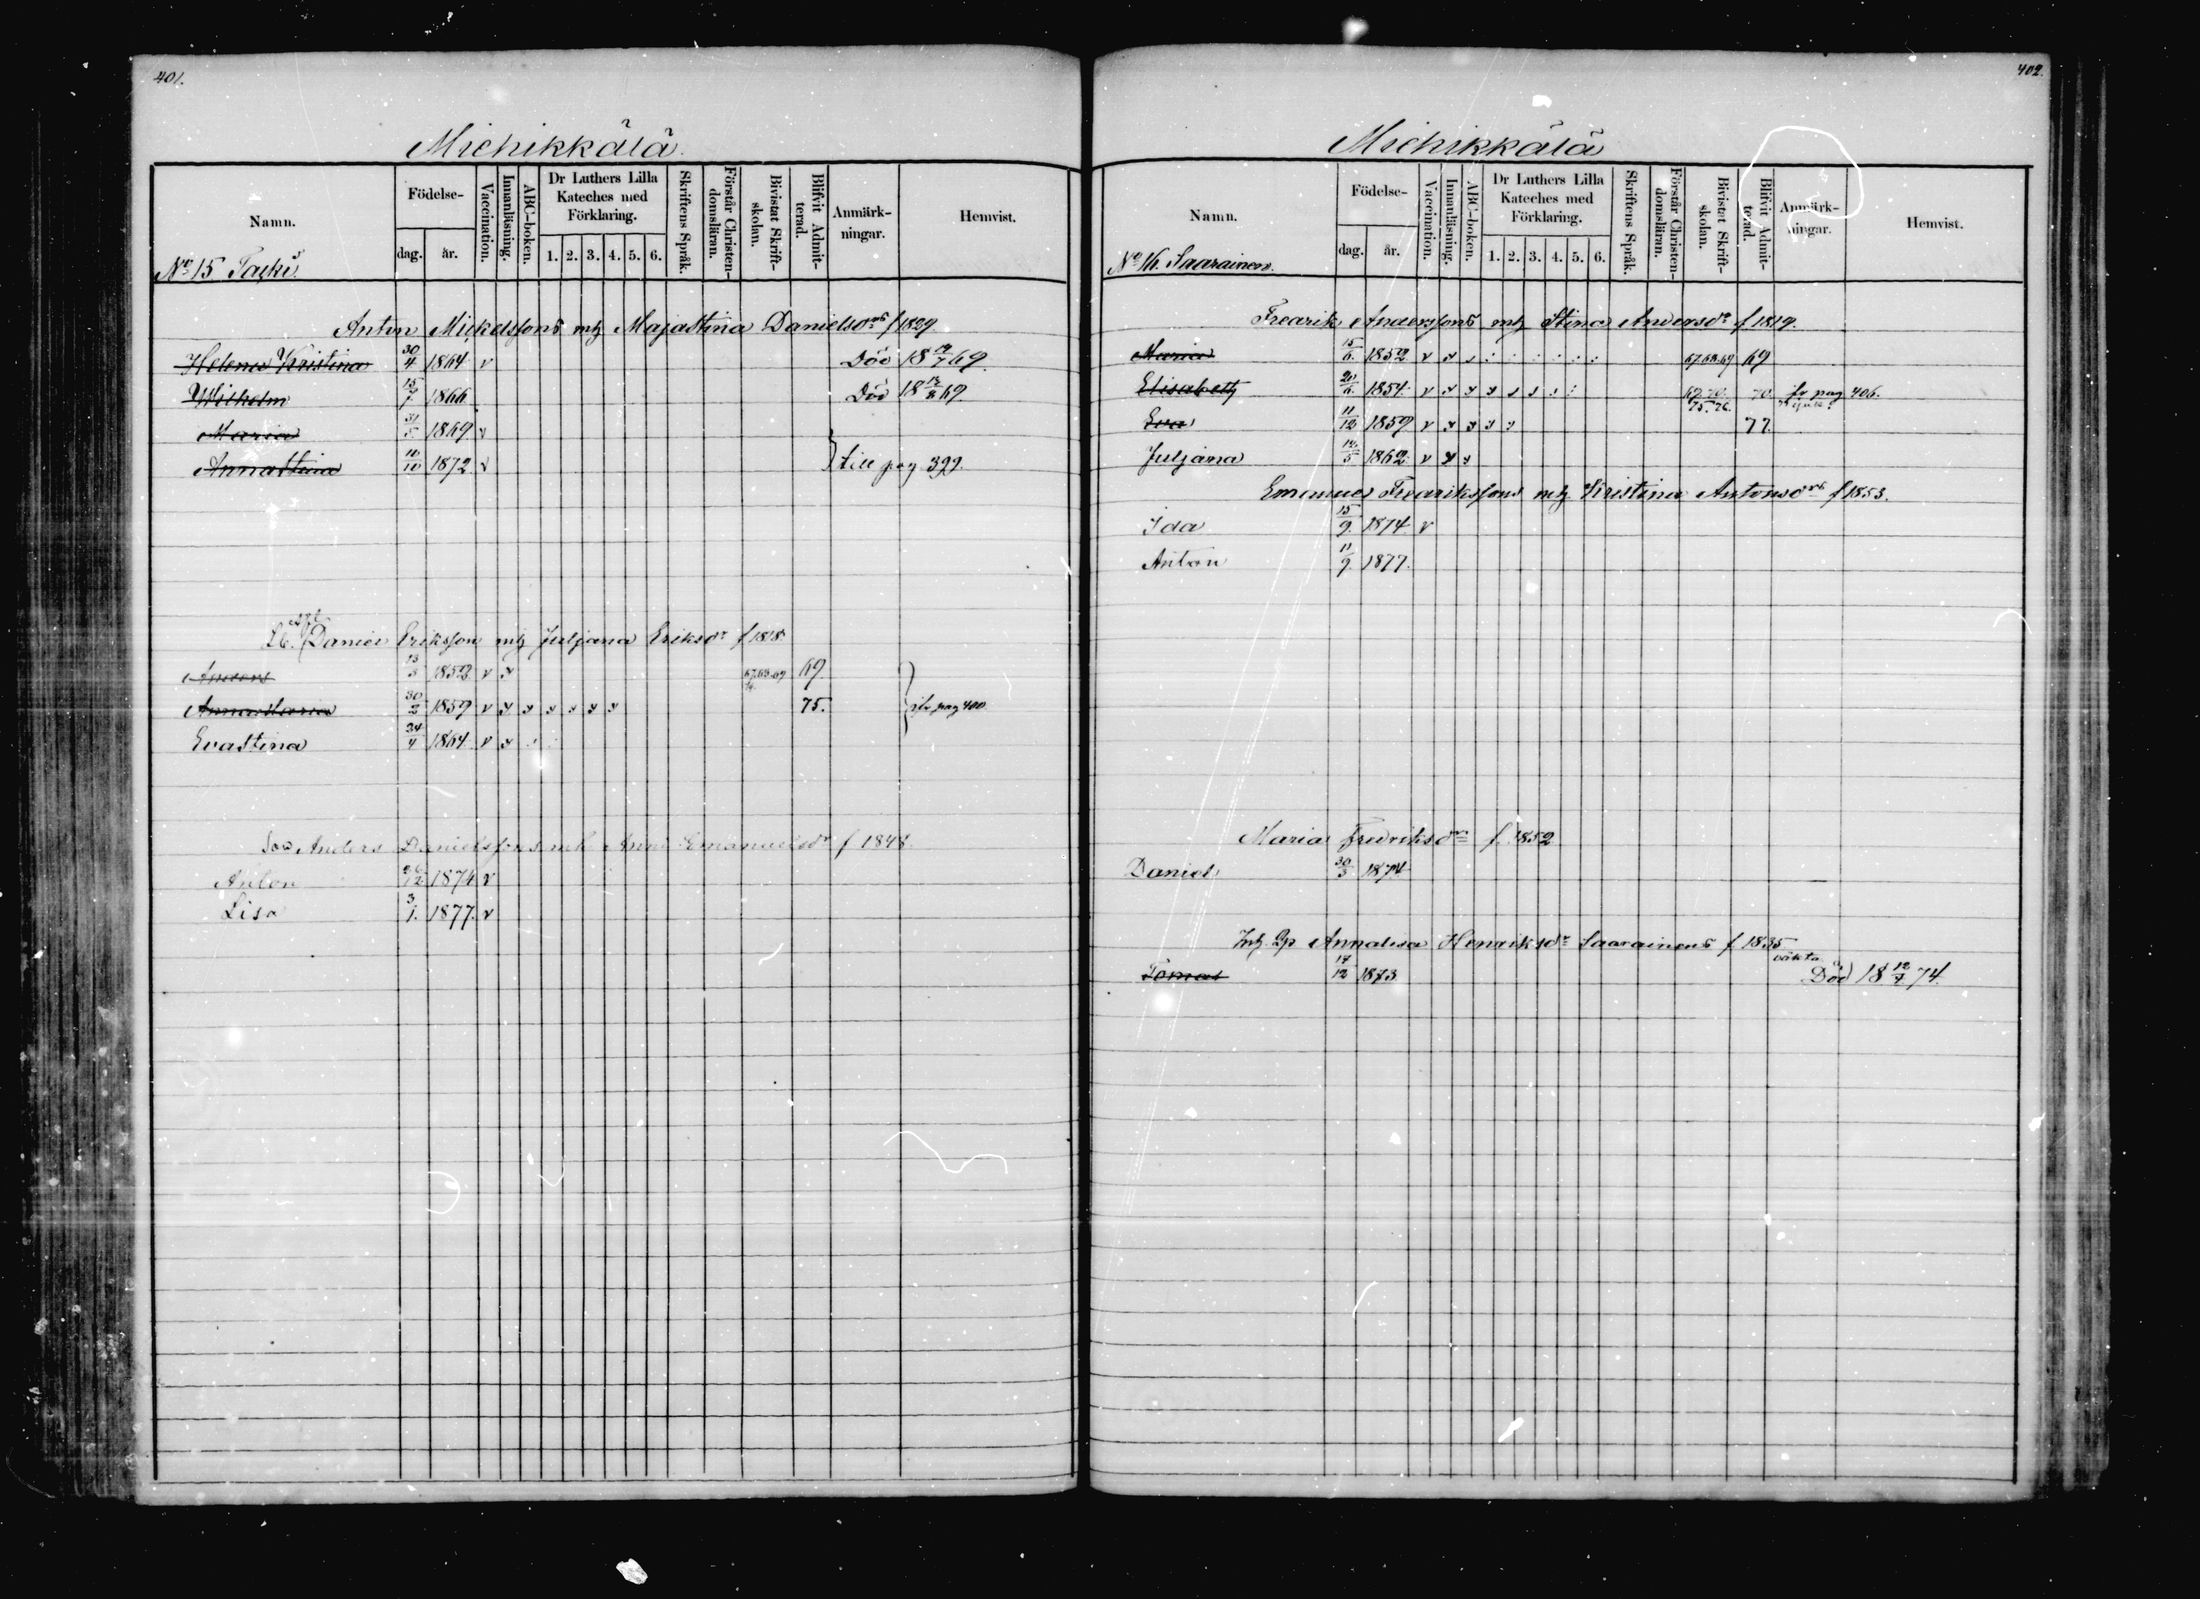 401.
Michikkälä
Namn. Födelse- dag. år. Vaccination. Innanläsning. ABC-boken. Dr Luthers Lilla Kateches med Förklaring. 1. 2. 3. 4. 5. 6. Skriftens Språk. Förstår Christendomsläran. Bivistat Skriftskolan. Blifvit Admitterad. Anmärkningar. Hemvist.
No 15
Anton Mickelssons mh Majastina Danielsdrs f 1829
Helena Kristina 30/4 1864 v Död 18 69.
Wilhelm 15/7 1866 Död 18 69.
Maria 31/5 1869 v
Annastina 10 1872 v till pag 399.
Daniel Eriksson mh Juljana Eriksdr f 1818
Anders 13/3 1852 v 67.68.69 69.
Anna Maria 30/3 1859 v 75. pag 400
Evastina 24/4 1864 v
Son Anders Danielssons mh Anna Emanuelsdr f 1848.
Anton 12 1874 v
Lisa 3/1. 1877. v
402.
Michikkälä
Namn. Födelse- dag. år. Vaccination. Innanläsning. ABC-boken. Dr Luthers Lilla Kateches med Förklaring. 1. 2. 3. 4. 5. 6. Skriftens Språk. Förstår Christendomsläran. Bivistat Skriftskolan. Blifvit Admitterad. Anmärkningar. Hemvist.
No 16. Saarainen.
Fredrik Anderssons mh Stina Andersdr f 1819.
Maria 15/6. 1852 v 67.68.69 69
Elisabeth 20/6. 1854. v 69.70. 75.76. 70. pag 406.
Eva 11/12 1859 v 77.
Juljana 12/5 1862. v
Emanuel Fredrikssons mh Kristina Antonsdrs f 1853.
Ida 15/9. 1874. v
Anton 11/9. 1877.
Maria Fredriksdr f. 1852
Daniel 30/3 1874
Annalisa Henriksdr Saarainens f 1835
Tomas 17/12 1873. oäkta Död 18 12/7 74.